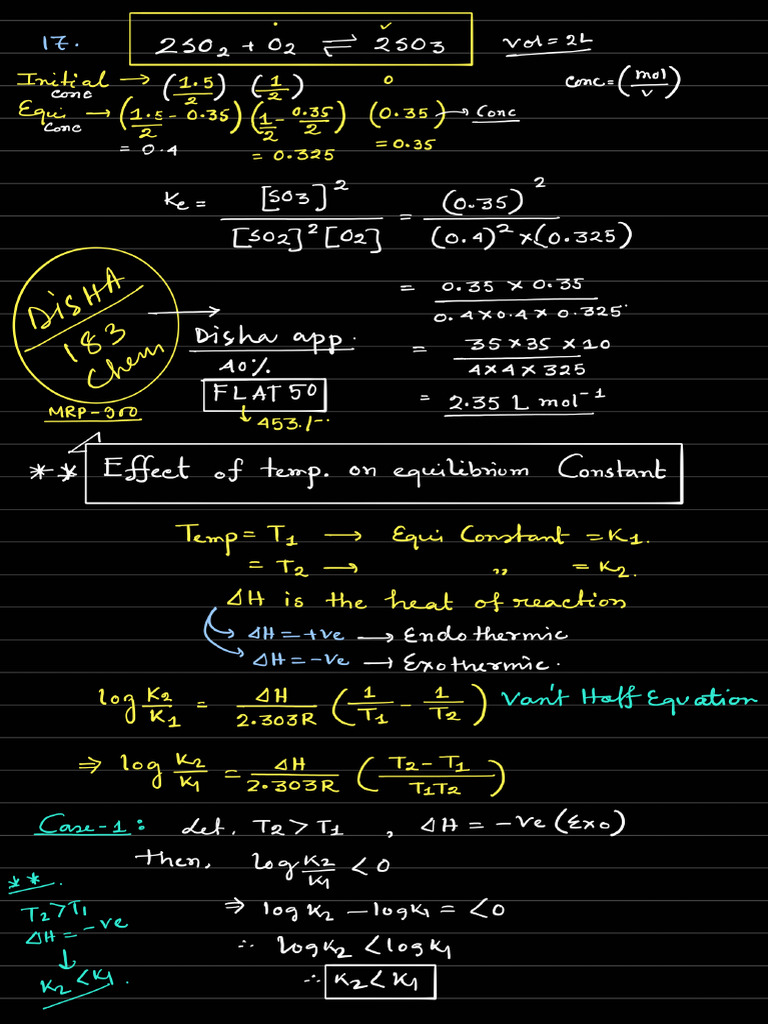 17. 2SO2 + O2 ⇌ 2SO3 Vol = 2L
Initial conc → (1.5/2) (1/2) 0 conc = (mol/v)
Equi conc → (1.5/2 - 0.35) (1/2 - 0.35/2) (0.35) → Conc
= 0.4 = 0.325 = 0.35
Kc = [SO3]^2 / [SO2]^2 [O2] = (0.35)^2 / (0.4)^2 × (0.325)
= 0.35 × 0.35 / 0.4 × 0.4 × 0.325.
= 35 × 35 × 10 / 4 × 4 × 325
= 2.35 L mol^-1
DISHA
183
Chem
MRP - 900
→ Disha app.
40%
FLAT 50
↳ 453./-
** Effect of temp. on equilibrium Constant
Temp = T1 → Equi Constant = K1.
= T2 → ,, = K2.
ΔH is the heat of reaction
ΔH = +ve → Endothermic
ΔH = -ve → Exothermic.
log K2/K1 = ΔH/2.303R (1/T1 - 1/T2) Van't Hoff Equation
⇒ log K2/K1 = ΔH/2.303R (T2 - T1/T1T2)
Case-1: Let, T2 > T1, ΔH = -ve (Exo)
then, log K2/K1 < 0
⇒ log K2 - log K1 = < 0
∴ log K2 < log K1
∴ K2 < K1
**.
T2 > T1
ΔH = -ve
↓
K2 < K1.